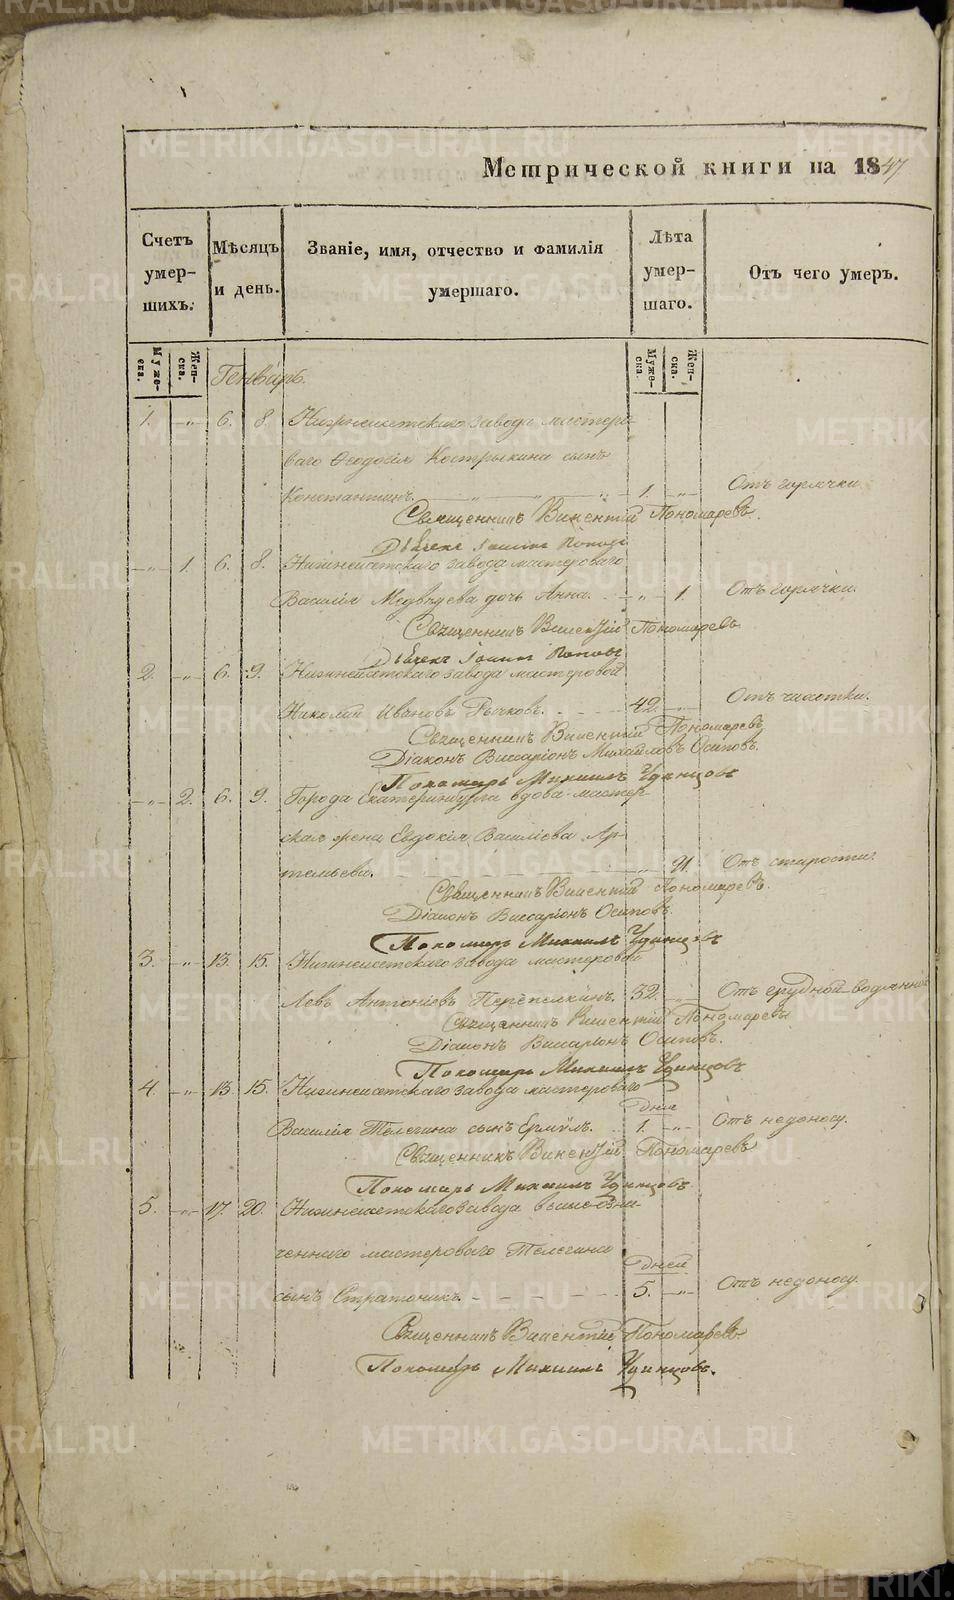 METRIKI.GASO-URAL.RU
Метрической книги на 1847
Счетъ умер-шихъ.
Мѣсяцъ и день.
Званіе, имя, отчество и фамилія умершаго.
Лѣта умер-шаго.
Отъ чего умеръ.
Муже-ска.
Жен-ска.
Муже-ска.
Жен-ска.
Генварь.
1. „ 6. 8. Нижнеисетскаго завода мастеро-
ваго Ѳеодосія Кострыкина сынъ
Константинъ. 1. „ Отъ горячки.
Священникъ Викентій Пономаревъ.
Дьячекъ Іоаннъ Поповъ
„ 1. 6. 8. Нижнеисетскаго завода мастероваго
Василія Медвѣдева дочь Анна. „ 1. Отъ горячки.
Священникъ Викентій Пономаревъ
Дьячекъ Іоаннъ Поповъ
2. „ 6. 9. Нижнеисетскаго завода мастеровой
Николай Ивановъ Рычковъ. 42. „ Отъ чахотки.
Священникъ Викентій Пономаревъ
Діаконъ Виссаріонъ Михайловъ Осиповъ.
Пономарь Михаилъ Удинцовъ
„ 2. 6. 9. Города Екатеринбурга вдова мастер-
ская жена Евдокія Василіева Ар-
темьева. „ 91. Отъ старости.
Священникъ Викентій Пономаревъ.
Діаконъ Виссаріонъ Осиповъ.
Пономарь Михаилъ Удинцовъ
3. „ 13. 15. Нижнеисетскаго завода мастеровой
Левъ Антоніевъ Перепелкинъ. 32. „ Отъ грудной водянки
Священникъ Викентій Пономаревъ
Діаконъ Виссаріонъ Осиповъ.
Пономарь Михаилъ Удинцовъ
4. „ 13. 15. Нижнеисетскаго завода мастероваго
Дня
Василія Телегина сынъ Ермилъ. 1. „ Отъ недоносу.
Священникъ Викентій Пономаревъ
Пономарь Михаилъ Удинцовъ.
5. „ 17. 20. Нижнеисетскаго завода вышеозна-
ченнаго мастероваго Телегина
Дней
сынъ Стратоникъ. 5. „ Отъ недоносу.
Священникъ Викентій Пономаревъ
Пономарь Михаилъ Удинцовъ.